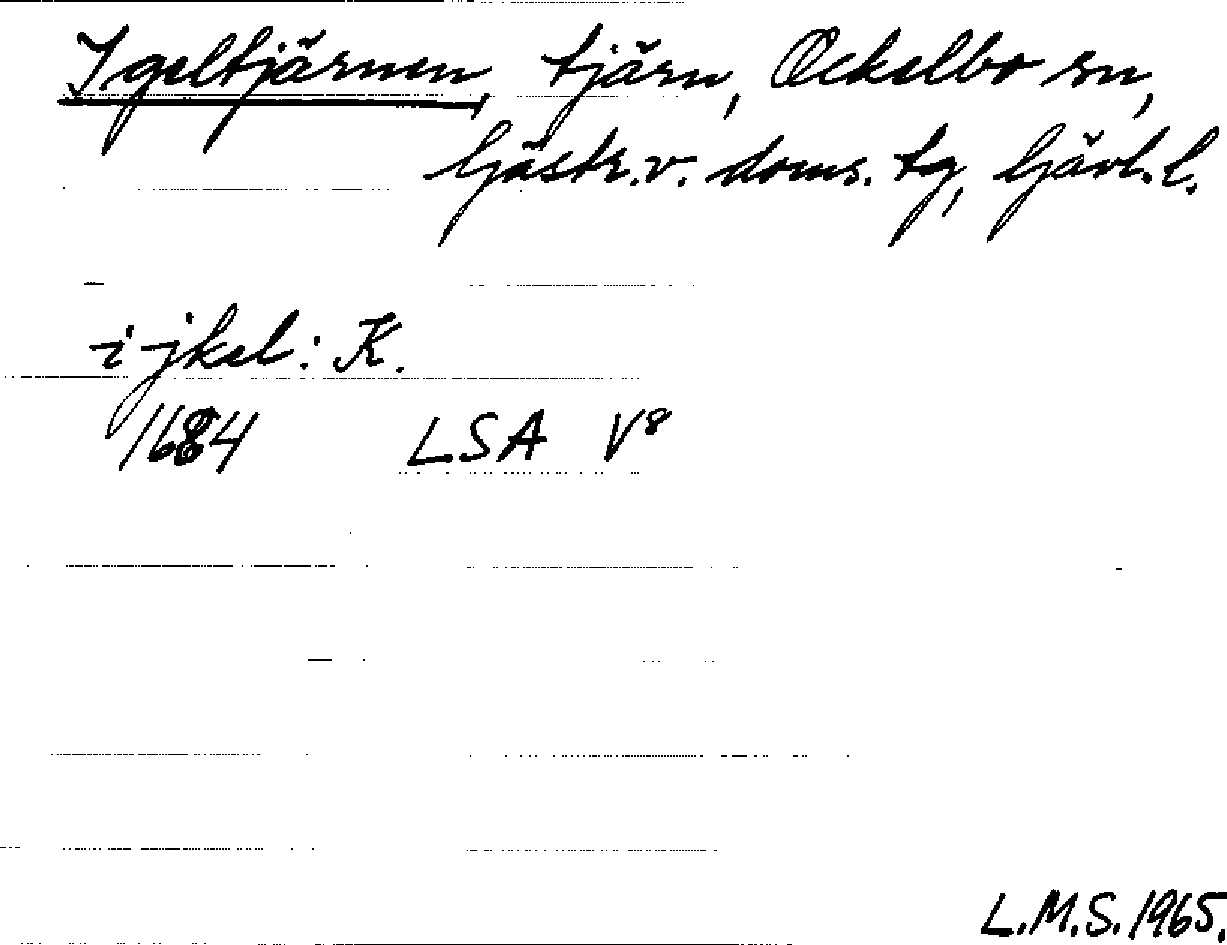 Igeltjärnen, tjärn, Ockelbo sn,
Gästr.v. doms. tg, Gävl. l.
i jkel: K.
1684 LSA V8
L.M.S. 1965.